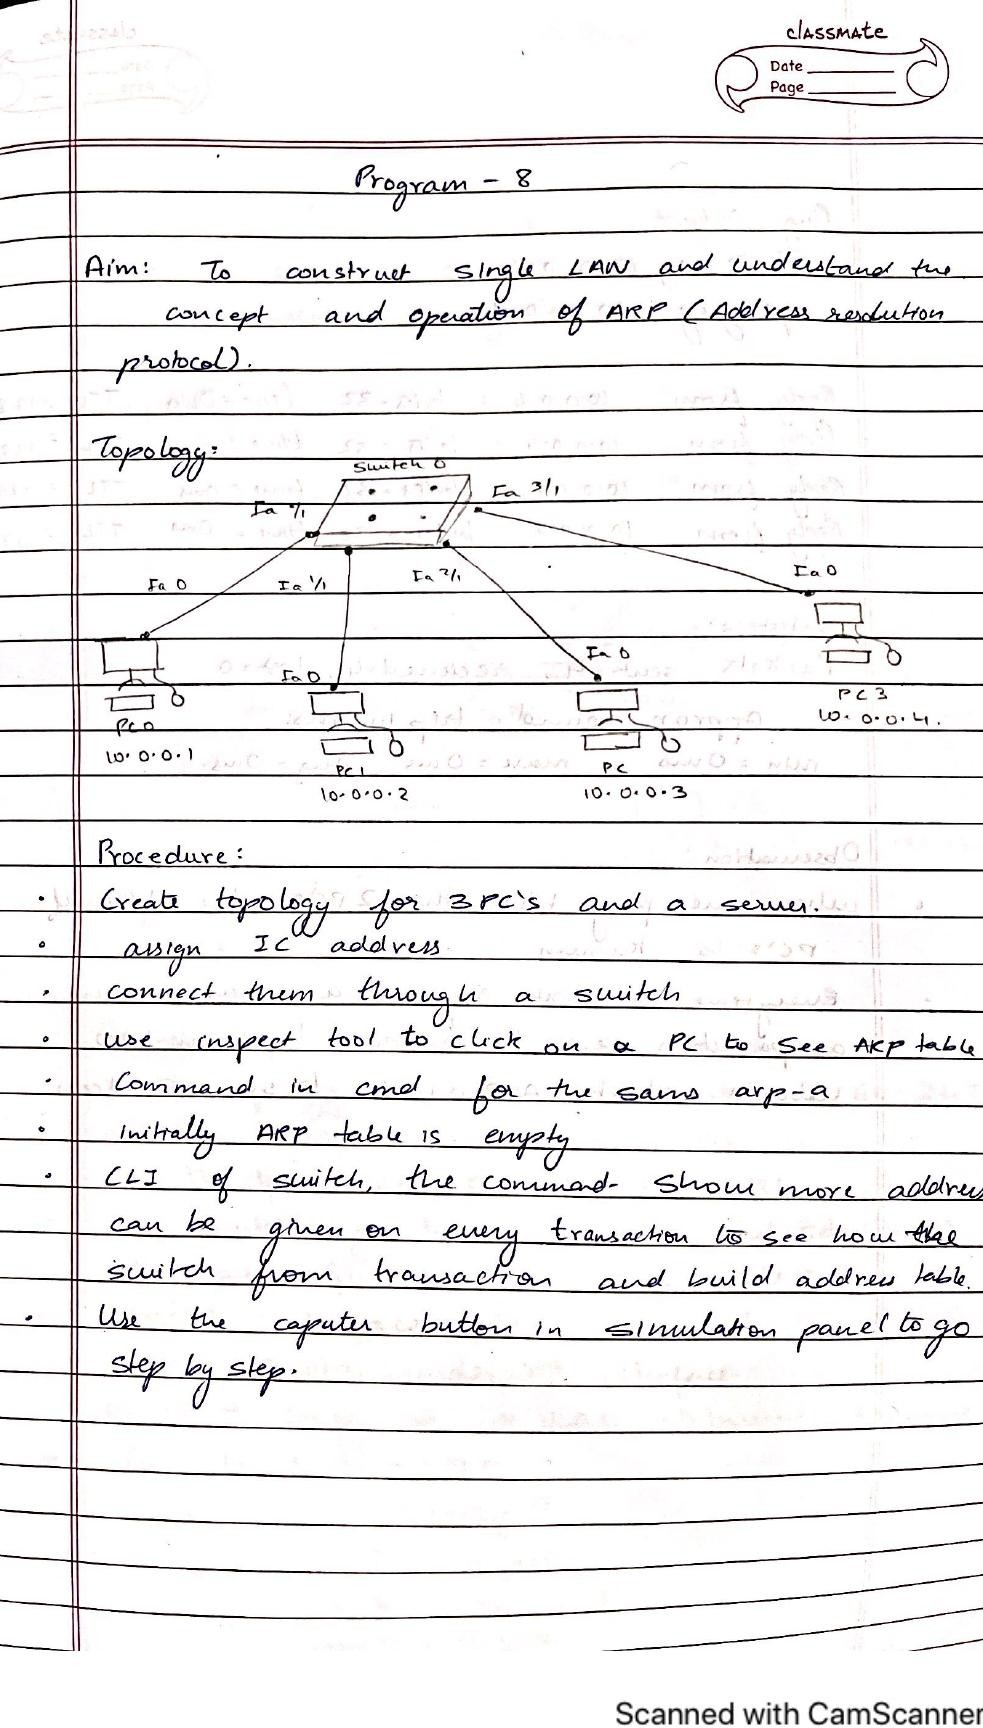 classmate
Date
Page
Program - 8
Aim: To construct single LAN and understand the
concept and operation of ARP (Address resolution
protocol).
Topology:
Switch 0
Fa 0/1
Fa 3/1
Fa 0
Fa 1/1
Fa 2/1
Fa 0
Fa 0
Fa 0
PC0
10.0.0.1
PC1
10.0.0.2
PC
10.0.0.3
PC3
10.0.0.4.
Procedure:
• Create topology for 3 PC's and a server.
• assign IC address
• connect them through a switch
• use inspect tool to click on a PC to see ARP table
• Command in cmd for the same arp-a
• initially ARP table is empty
• CLI of switch, the command- Show more address
can be given on every transaction to see how the
switch from transaction and build address table.
• Use the caputer button in simulation panel to go
step by step.
Scanned with CamScanner